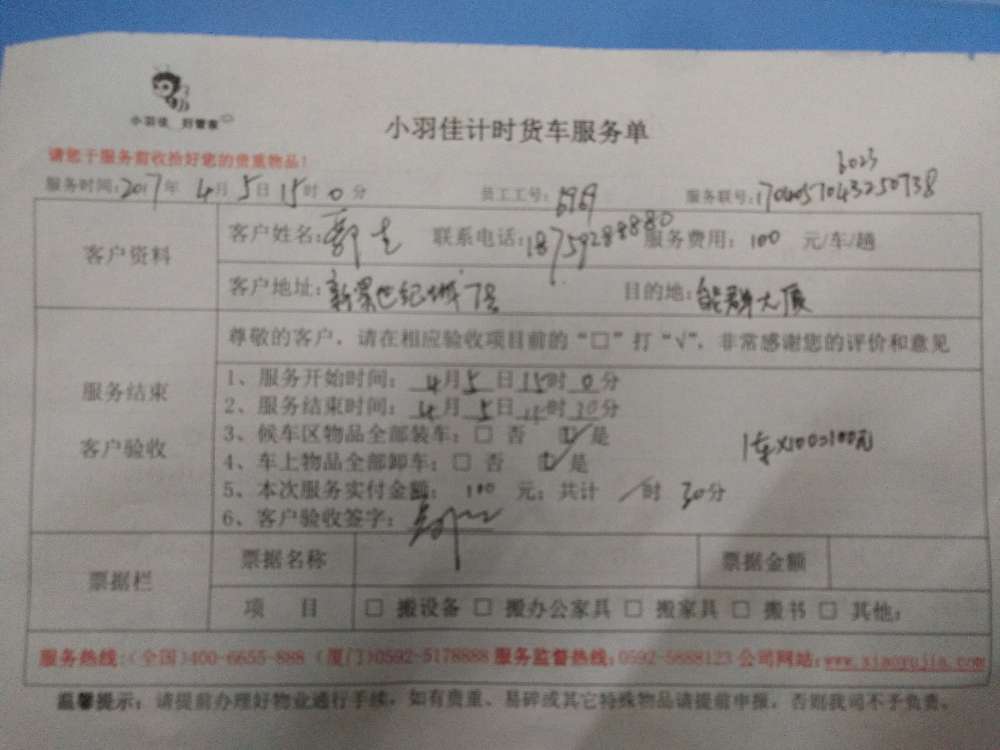 小羽佳 好管家
小羽佳计时货车服务单
请您于服务前收拾好您的贵重物品!
6023
服务时间:2017年 4月5日15时0分 员工工号:6969 服务联号:
客户资料
客户姓名: 联系电话:18759288880 服务费用:100 元/车/趟
客户地址:新景世纪城7号 目的地:能群大厦
服务结束
客户验收
尊敬的客户,请在相应验收项目前的“□”打“√”,非常感谢您的评价和意见
1、服务开始时间:4月5日15时0分
2、服务结束时间:4月5日 时30分
3、候车区物品全部装车:□ 否 ☑ 是
4、车上物品全部卸车:□ 否 ☑ 是
1车×100=100元
5、本次服务实付金额:100 元;共计 / 时 30分
6、客户验收签字:
票据栏
票据名称 票据金额
项 目 □ 搬设备 □ 搬办公家具 □ 搬家具 □ 搬书 □ 其他:
服务热线:(全国)400-6655-888 (厦门)0592-5178888 服务监督热线:0592-5888123 公司网站:www.xiaoyujia.com
温馨提示:请提前办理好物业通行手续,如有贵重、易碎或其它特殊物品请提前申报,否则我司不予负责。